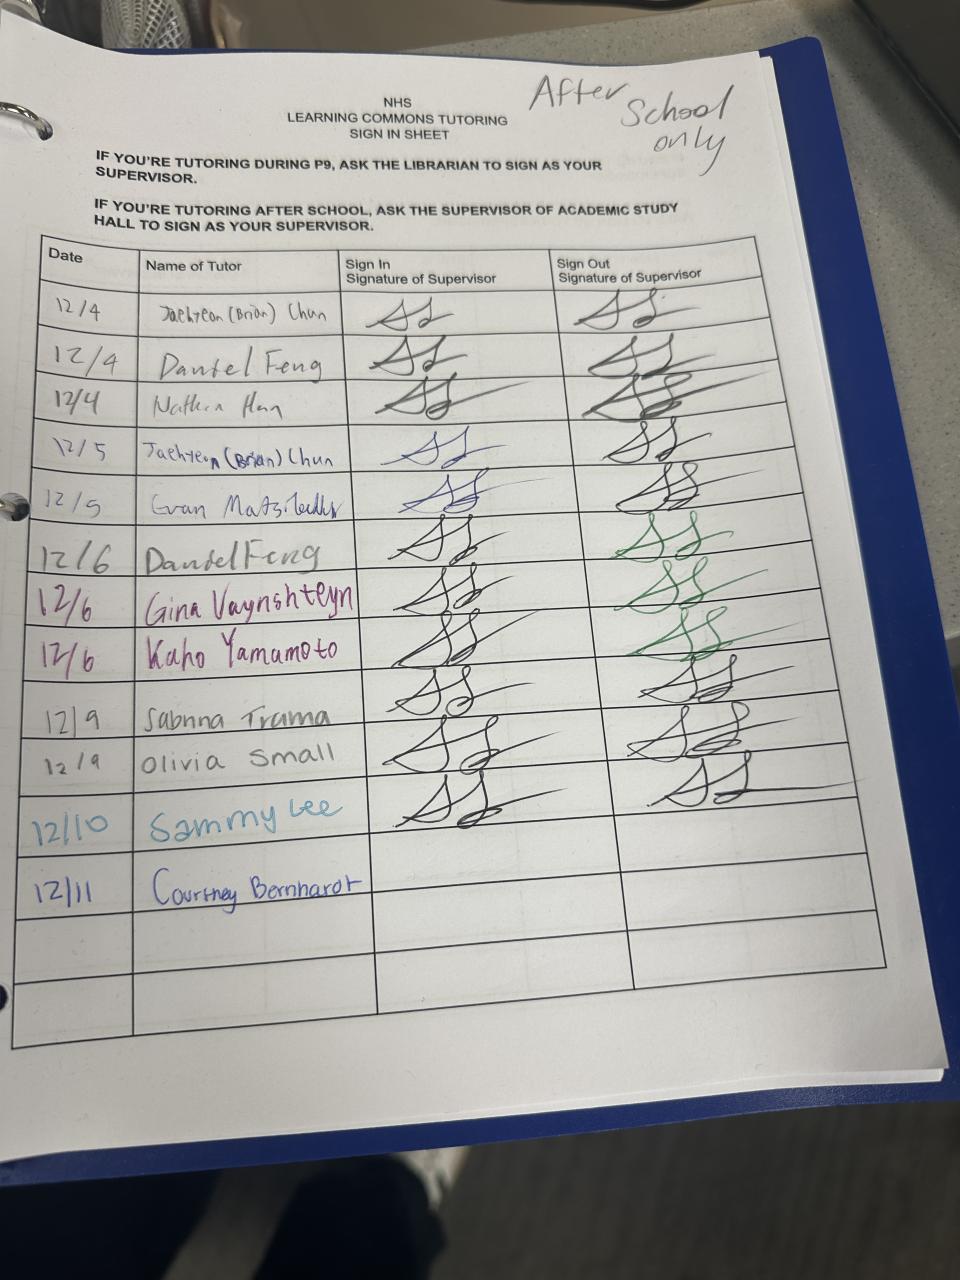 After
School
only
NHS
LEARNING COMMONS TUTORING
SIGN IN SHEET
IF YOU'RE TUTORING DURING P9, ASK THE LIBRARIAN TO SIGN AS YOUR
SUPERVISOR.
IF YOU'RE TUTORING AFTER SCHOOL, ASK THE SUPERVISOR OF ACADEMIC STUDY
HALL TO SIGN AS YOUR SUPERVISOR.
Date Name of Tutor Sign In Sign Out
Signature of Supervisor Signature of Supervisor
12/4 Jaehyeon (Brian) Chun
12/4 Daniel Feng
12/4 Nathan Han
12/5 Jaehyeon (Brian) Chun
12/5 Evan
12/6 Daniel Feng
12/6 Gina Vaynshteyn
12/6 Kaho Yamamoto
12/9 Sabrina Trama
12/9 Olivia Small
12/10 Sammy Lee
12/11 Courtney Bernhardt